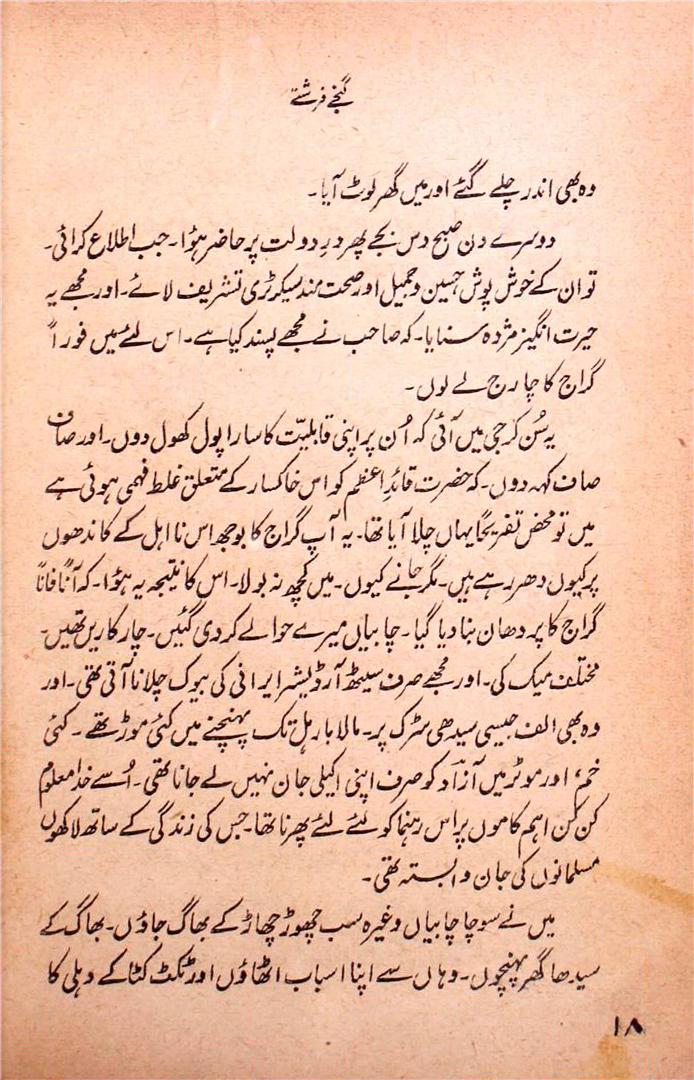 گنجے فرشتے
وہ بھی اندر چلے گئے اور میں گھر لوٹ آیا۔
دوسرے دن صبح دس بجے پھر درِ دولت پر حاضر ہؤا۔ جب اطلاع کرائی۔
تو ان کے خوش پوش حسین و جمیل اور صحت مند سیکرٹری تشریف لائے۔ اور مجھے یہ
حیرت انگیز مژدہ سنایا۔ کہ صاحب نے مجھے پسند کیا ہے۔ اس لئے میں فوراً
گراج کا چارج لے لوں۔
یہ سُن کر جی میں آئی کہ اُن پر اپنی قابلیّت کا سارا پول کھول دوں۔ اور صاف
صاف کہہ دوں۔ کہ حضرت قائدِ اعظم کو اس خاکسار کے متعلق غلط فہمی ہوئی ہے
میں تو محض تفریحاً یہاں چلا آیا تھا۔ یہ آپ گراج کا بوجھ اس نااہل کے کاندھوں
پر کیوں دھر رہے ہیں۔ مگر جانے کیوں۔ میں کچھ نہ بولا۔ اس کا نتیجہ یہ ہؤا۔ کہ آناً فاناً
گراج کا پردھان بنا دیا گیا۔ چابیاں میرے حوالے کر دی گئیں۔ چار کاریں تھیں۔
مختلف میک کی۔ اور مجھے صرف سیٹھ آرڈیشر ایرانی کی بیوک چلانا آتی تھی۔ اور
وہ بھی الف جیسی سیدھی سڑک پر۔ مالابار ہل تک پہنچنے میں کئی موڑ تھے۔ کئی
خم، اور موٹر میں آزاد کو صرف اپنی اکیلی جان نہیں لے جانا تھی۔ اُسے خدا معلوم
کن کن اہم کاموں پر اس رہنما کو لئے لئے پھرنا تھا۔ جس کی زندگی کے ساتھ لاکھوں
مسلمانوں کی جان وابستہ تھی۔
میں نے سوچا چابیاں وغیرہ سب چھوڑ چھاڑ کے بھاگ جاؤں۔ بھاگ کے
سیدھا گھر پہنچوں۔ وہاں سے اپنا اسباب اٹھاؤں اور ٹکٹ کٹا کے دہلی کا
۱۸